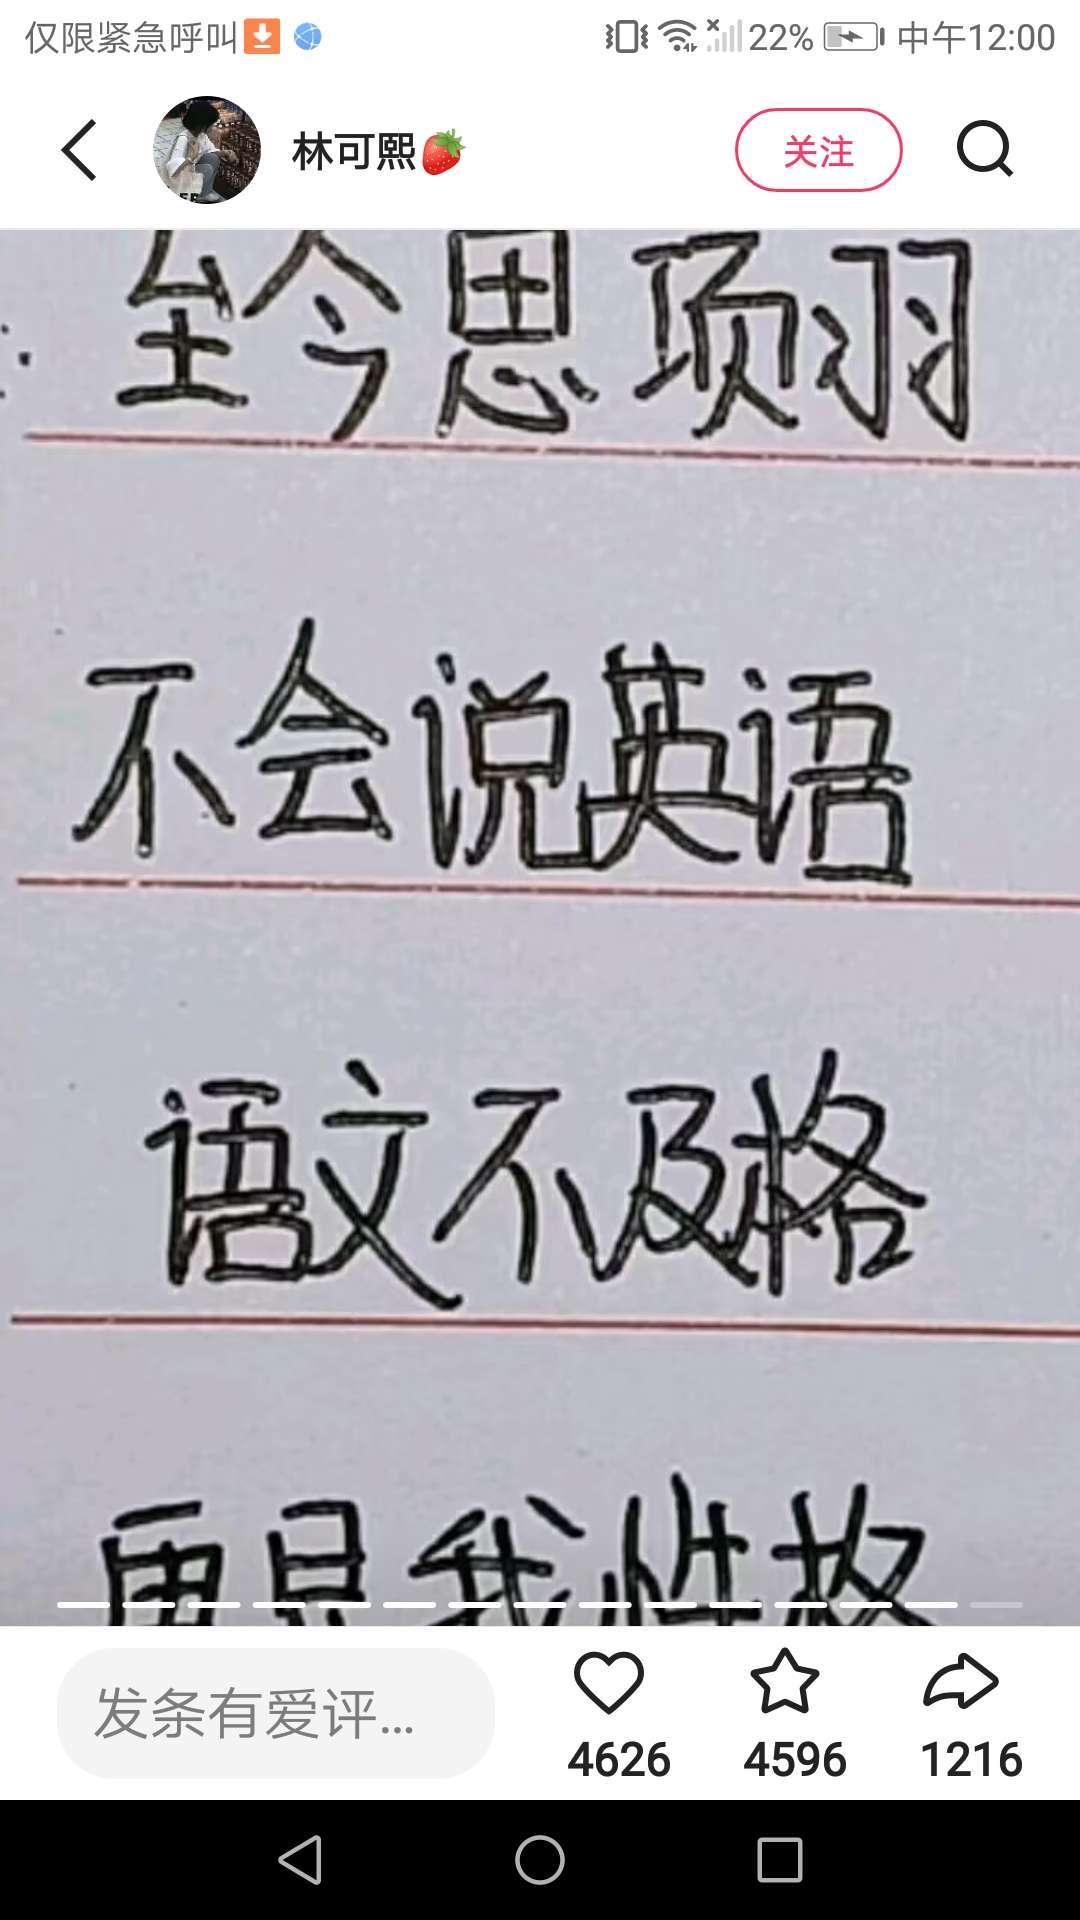 仅限紧急呼叫 22% 中午12:00
林可熙 关注
至今思项羽
不会说英语
语文不及格
再是我性格
发条有爱评...
4626 4596 1216